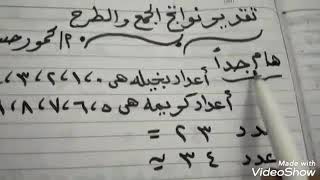 تقدير نواتج الجمع والطرح
م/ محمود حس
هام جداً أعداد بخيله هى ٠،١،٢،٣،٤
أعداد كريمه هى ٥،٦،٧،٨،٩
دد ٢٣ =
عدد ٣٤ ≈
Made with
VideoShow